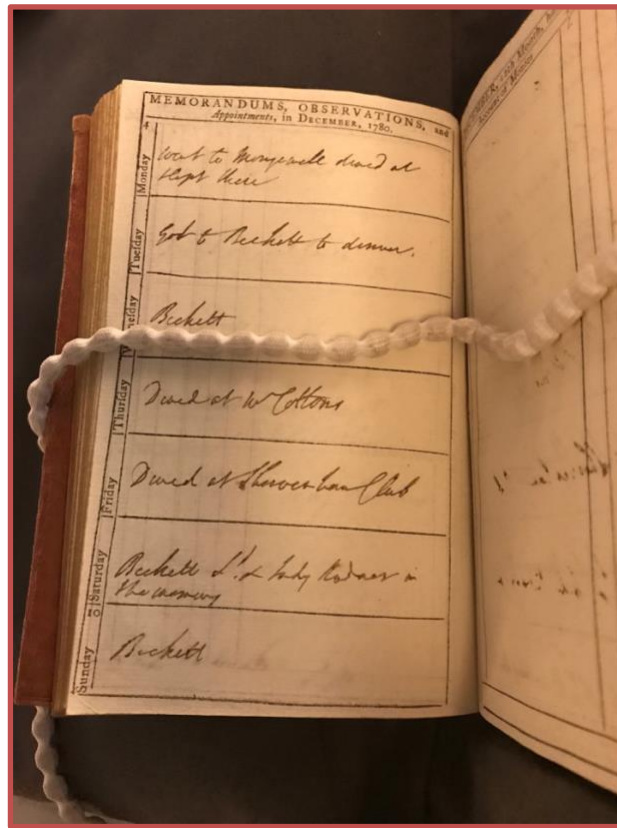 MEMORANDUMS, OBSERVATIONS, and
Appointments, in DECEMBER, 1780.
4
Monday
went to Mongewell dined at
slept there
Tuesday
Got to Beckett to dinner.
Beckett
Thurſday
Dined at Mr Cottons
Friday
Dined at Club
Saturday
Beckett Ld. & Lady Radnor in
the morning
10
Sunday
Beckett